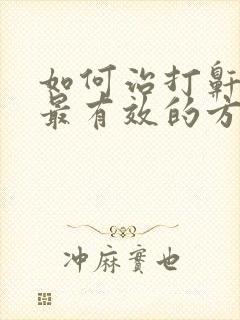 如何治打鼾
最有效的方
冲麻实也